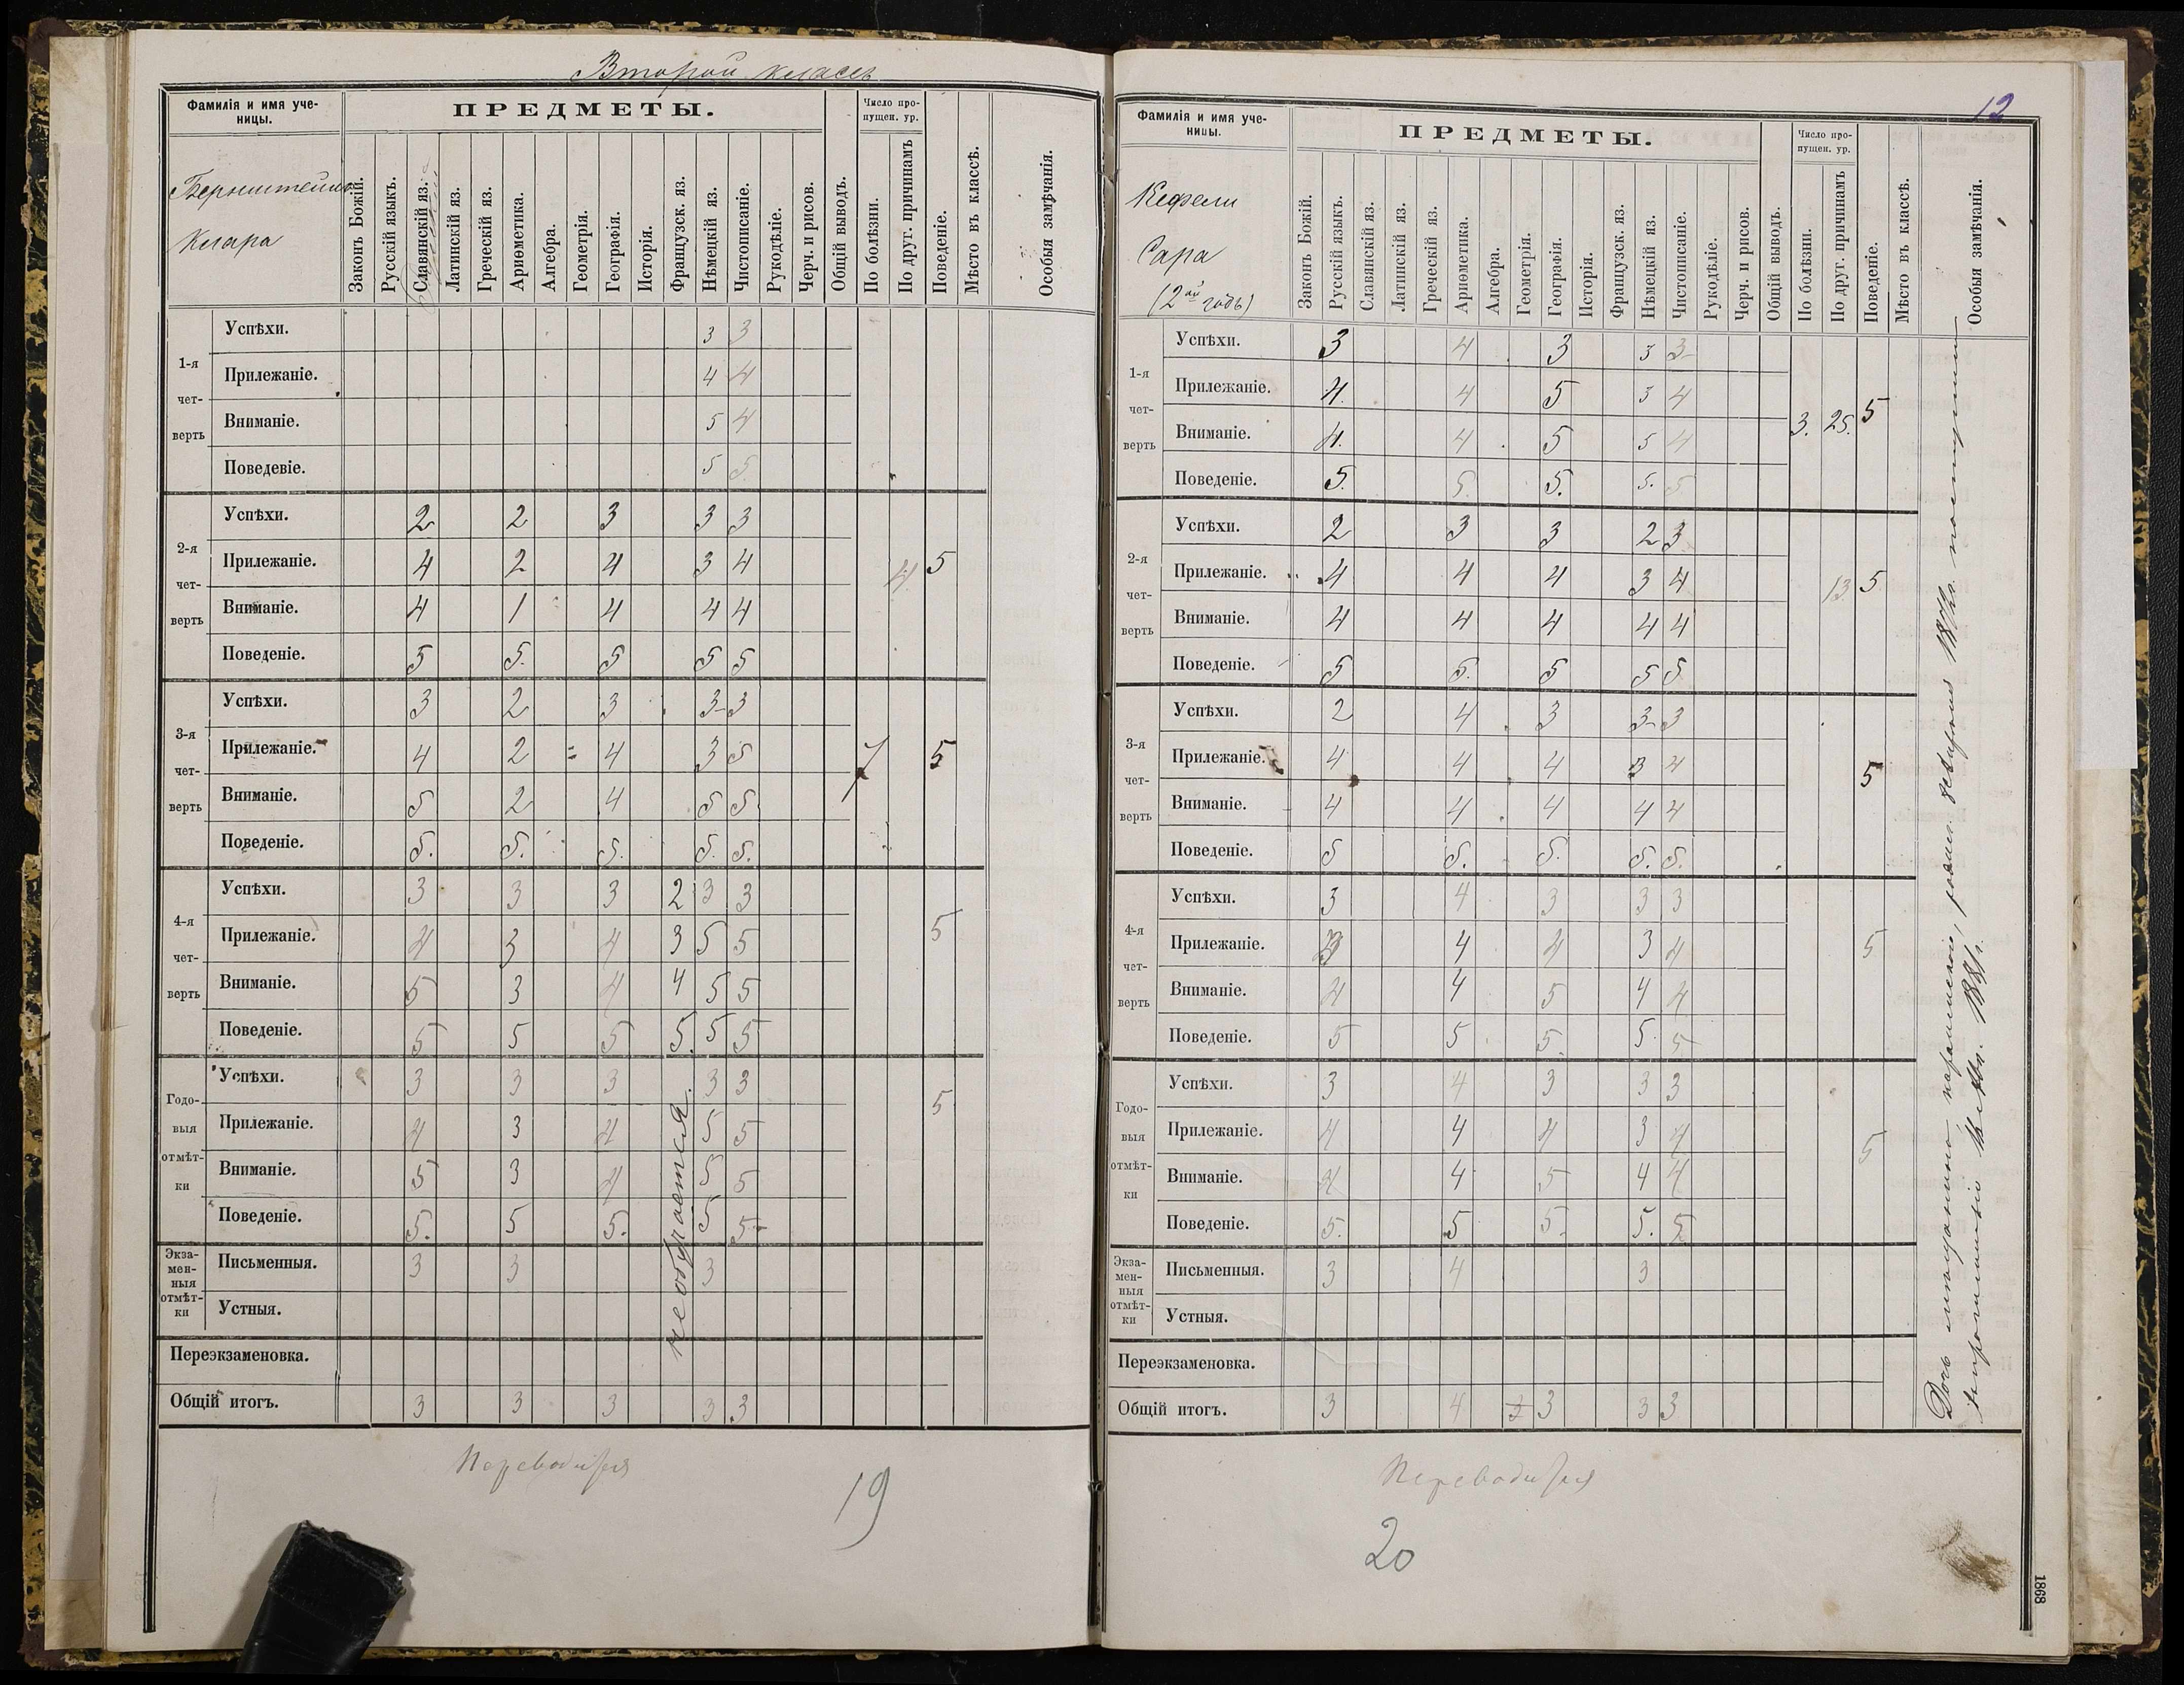 Второй классъ
Фамилія и имя уче-
ницы.
ПРЕДМЕТЫ.
Число про-
пущен. ур.
Бернштейнъ
Клара
Законъ Божій.
Русскій языкъ.
Славянскій яз.
Латинскій яз.
Греческій яз.
Ариѳметика.
Алгебра.
Геометрія.
Географія.
Исторія.
Французск. яз.
Нѣмецкій яз.
Чистописаніе.
Рукодѣліе.
Черч. и рисов.
Общій выводъ.
По болѣзни.
По друг. причинамъ
Поведеніе.
Мѣсто въ классѣ.
Особыя замѣчанія.
1-я четверть
Успѣхи. 3 3
Прилежаніе. 4 4
Вниманіе. 5 4
Поведевіе. 5 5
2-я четверть
Успѣхи. 2 2 3 3 3
Прилежаніе. 4 2 4 3 4 4 5
Вниманіе. 4 1 4 4 4
Поведеніе. 5 5. 5 5 5
3-я четверть
Успѣхи. 3 2 3 3- 3
Прилежаніе. 4 2 4 3 5 7 5
Вниманіе. 5 2 4 5 5
Поведеніе. 5. 5. 5. 5. 5.
4-я четверть
Успѣхи. 3 3 3 2 3 3
Прилежаніе. 4 3 4 3 5 5 5
Вниманіе. 5 3 4 4 5 5
Поведеніе. 5 5 5 5. 5 5
Годовыя отмѣтки
Успѣхи. 3 3 3 3 3 5
Прилежаніе. 4 3 4 5 5
Вниманіе. 5 3 4 5 5
Поведеніе. 5. 5 5. 5 5
необучается.
Экзаменныя отмѣтки
Письменныя. 3 3 3
Устныя.
Переэкзаменовка.
Общій итогъ. 3 3 3 3 3
Переводится
19
12
Фамилія и имя уче-
ницы.
ПРЕДМЕТЫ.
Число про-
пущен. ур.
Кефели
Сара
(2ой годъ)
Законъ Божій.
Русскій языкъ.
Славянскій яз.
Латинскій яз.
Греческій яз.
Ариѳметика.
Алгебра.
Геометрія.
Географія.
Исторія.
Французск. яз.
Нѣмецкій яз.
Чистописаніе.
Рукодѣліе.
Черч. и рисов.
Общій выводъ.
По болѣзни.
По друг. причинамъ
Поведеніе.
Мѣсто въ классѣ.
Особыя замѣчанія.
1-я четверть
Успѣхи. 3 4 3 3 3-
Прилежаніе. 4. 4 5 3 4 3. 25. 5
Вниманіе. 4. 4 5 5 4
Поведеніе. 5. 5. 5. 5. 5
2-я четверть
Успѣхи. 2 3 3 2 3
Прилежаніе. 4 4 4 3 4 13. 5
Вниманіе. 4 4 4 4 4
Поведеніе. 5 5. 5 5 5
3-я четверть
Успѣхи. 2 4 3 3- 3
Прилежаніе. 4 4 4 3 4 5
Вниманіе. 4 4 4 4 4
Поведеніе. 5 5. 5. 5. 5.
4-я четверть
Успѣхи. 3 4 3 3 3
Прилежаніе. 4 4 3 4 5
Вниманіе. 4 4 5 4 4
Поведеніе. 5 5 5. 5. 5
Годовыя отмѣтки
Успѣхи. 3 4 3 3 3
Прилежаніе. 4 4 4 3 4 5
Вниманіе. 4 4 5 4 4
Поведеніе. 5. 5 5. 5. 5
Экзаменныя отмѣтки
Письменныя. 3 4 3
Устныя.
Переэкзаменовка.
Общій итогъ. 3 4 3 3 3
Дочь мѣщанина,
Переводится
20
1868